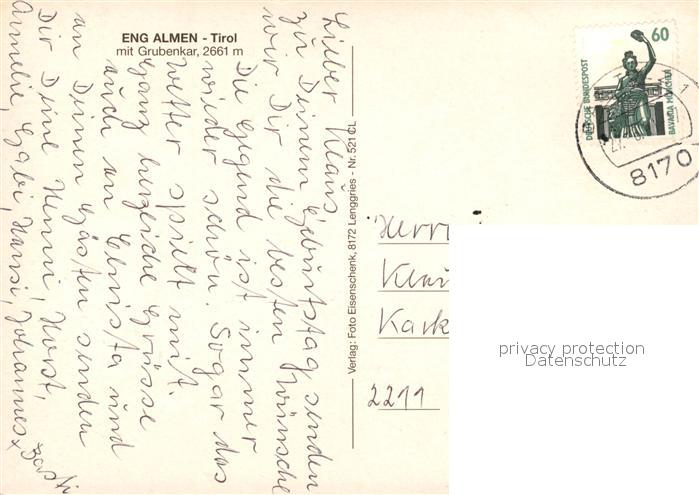 ENG ALMEN - Tirol
mit Grubenkar, 2661 m
Lieber Klaus
zu Deinem Geburtstag senden
wir Dir die besten Wünsche
Die Gegend ist immer
wieder schön. Sogar das
Wetter spielt mit.
Ganz herzliche Grüsse
auch an Christa und
an Deinen Gästen senden
Dir Deine Henni, Horst,
Annelie, Gabi, Hansi, Johannes x
Basti
Verlag: Foto Eisenschenk, 8172 Lenggries - Nr. 521 CL
60
DEUTSCHE BUNDESPOST
BAVARIA MÜNCHEN
1
8170
Herrn
Klau
Kark
2211
privacy protection
Datenschutz